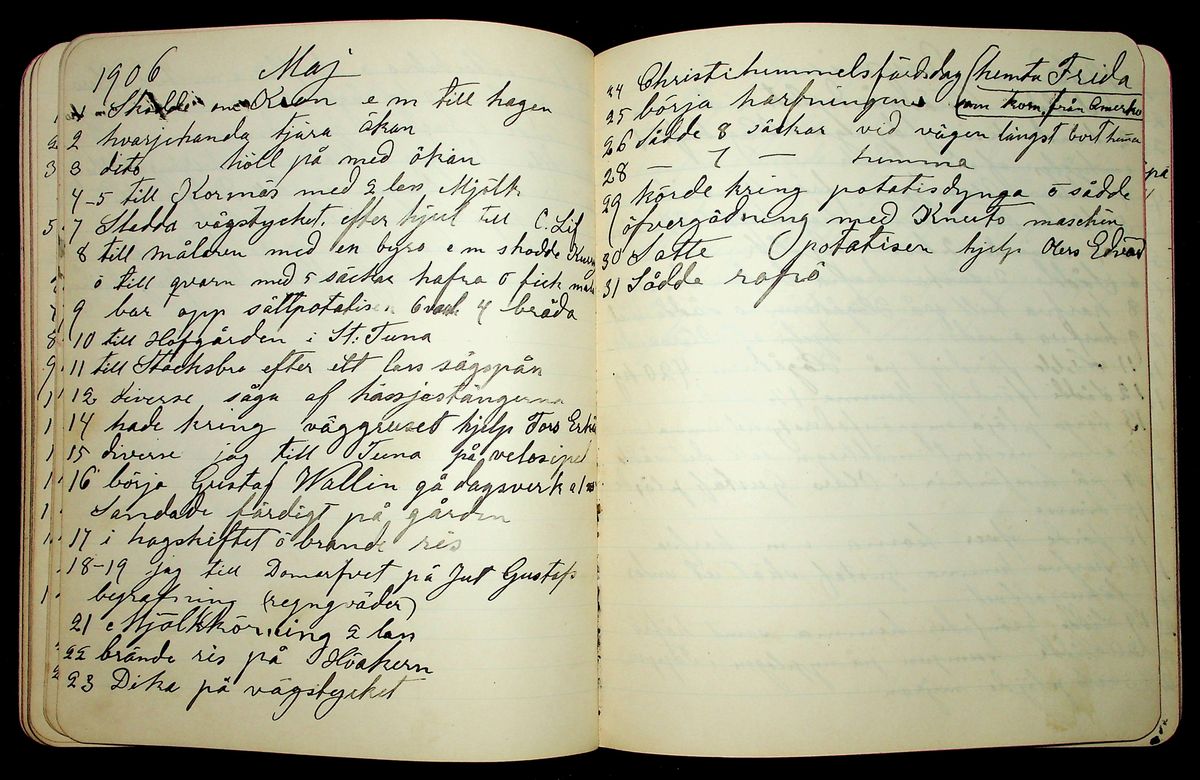 1906 Maj
1 Skodde om Kron e m till hagen
2 hvarjehanda tjära ökan
3 dito höll på med ökan
4-5 till Kornäs med 2 lass Mjölk
7 Stadda vägstycket, efter hjul till C. Lif
8 till målaren med en byro e m skodde
o till qvarn med 5 säckar hafra o fick
9 bar opp sättpotatisen 4 bräda
10 till Hofgården i St: Tuna
11 till Stacksbro efter ett lass sågspån
12 diverse såga af hässjestängerna
14 hade kring väggruset hjelp Fors
15 diverse jag till Tuna på velosiped
16 börja Gustaf Wallin gå dagsverk
Sandade färdigt på gården
17 i hagskiftet o brände ris
18-19 jag till Domarfvet på Jut Gustafs
begrafning (regngväder)
21 Mjölkkörning 2 lass
22 brände ris på Höakern
23 Dika på vägstycket
24 Christihimmelsfärdsdag (hemta Frida
25 börja harfningen som kom från Amerika
26 Sådde 8 säckar vid vägen längst bort
28 — 7 — hemma
29 körde kring potatisdynga o sådde
(öfvergödning med Knuts maschin
30 Satte potatisen hjelp Olers Edvard
31 Sådde rofrö